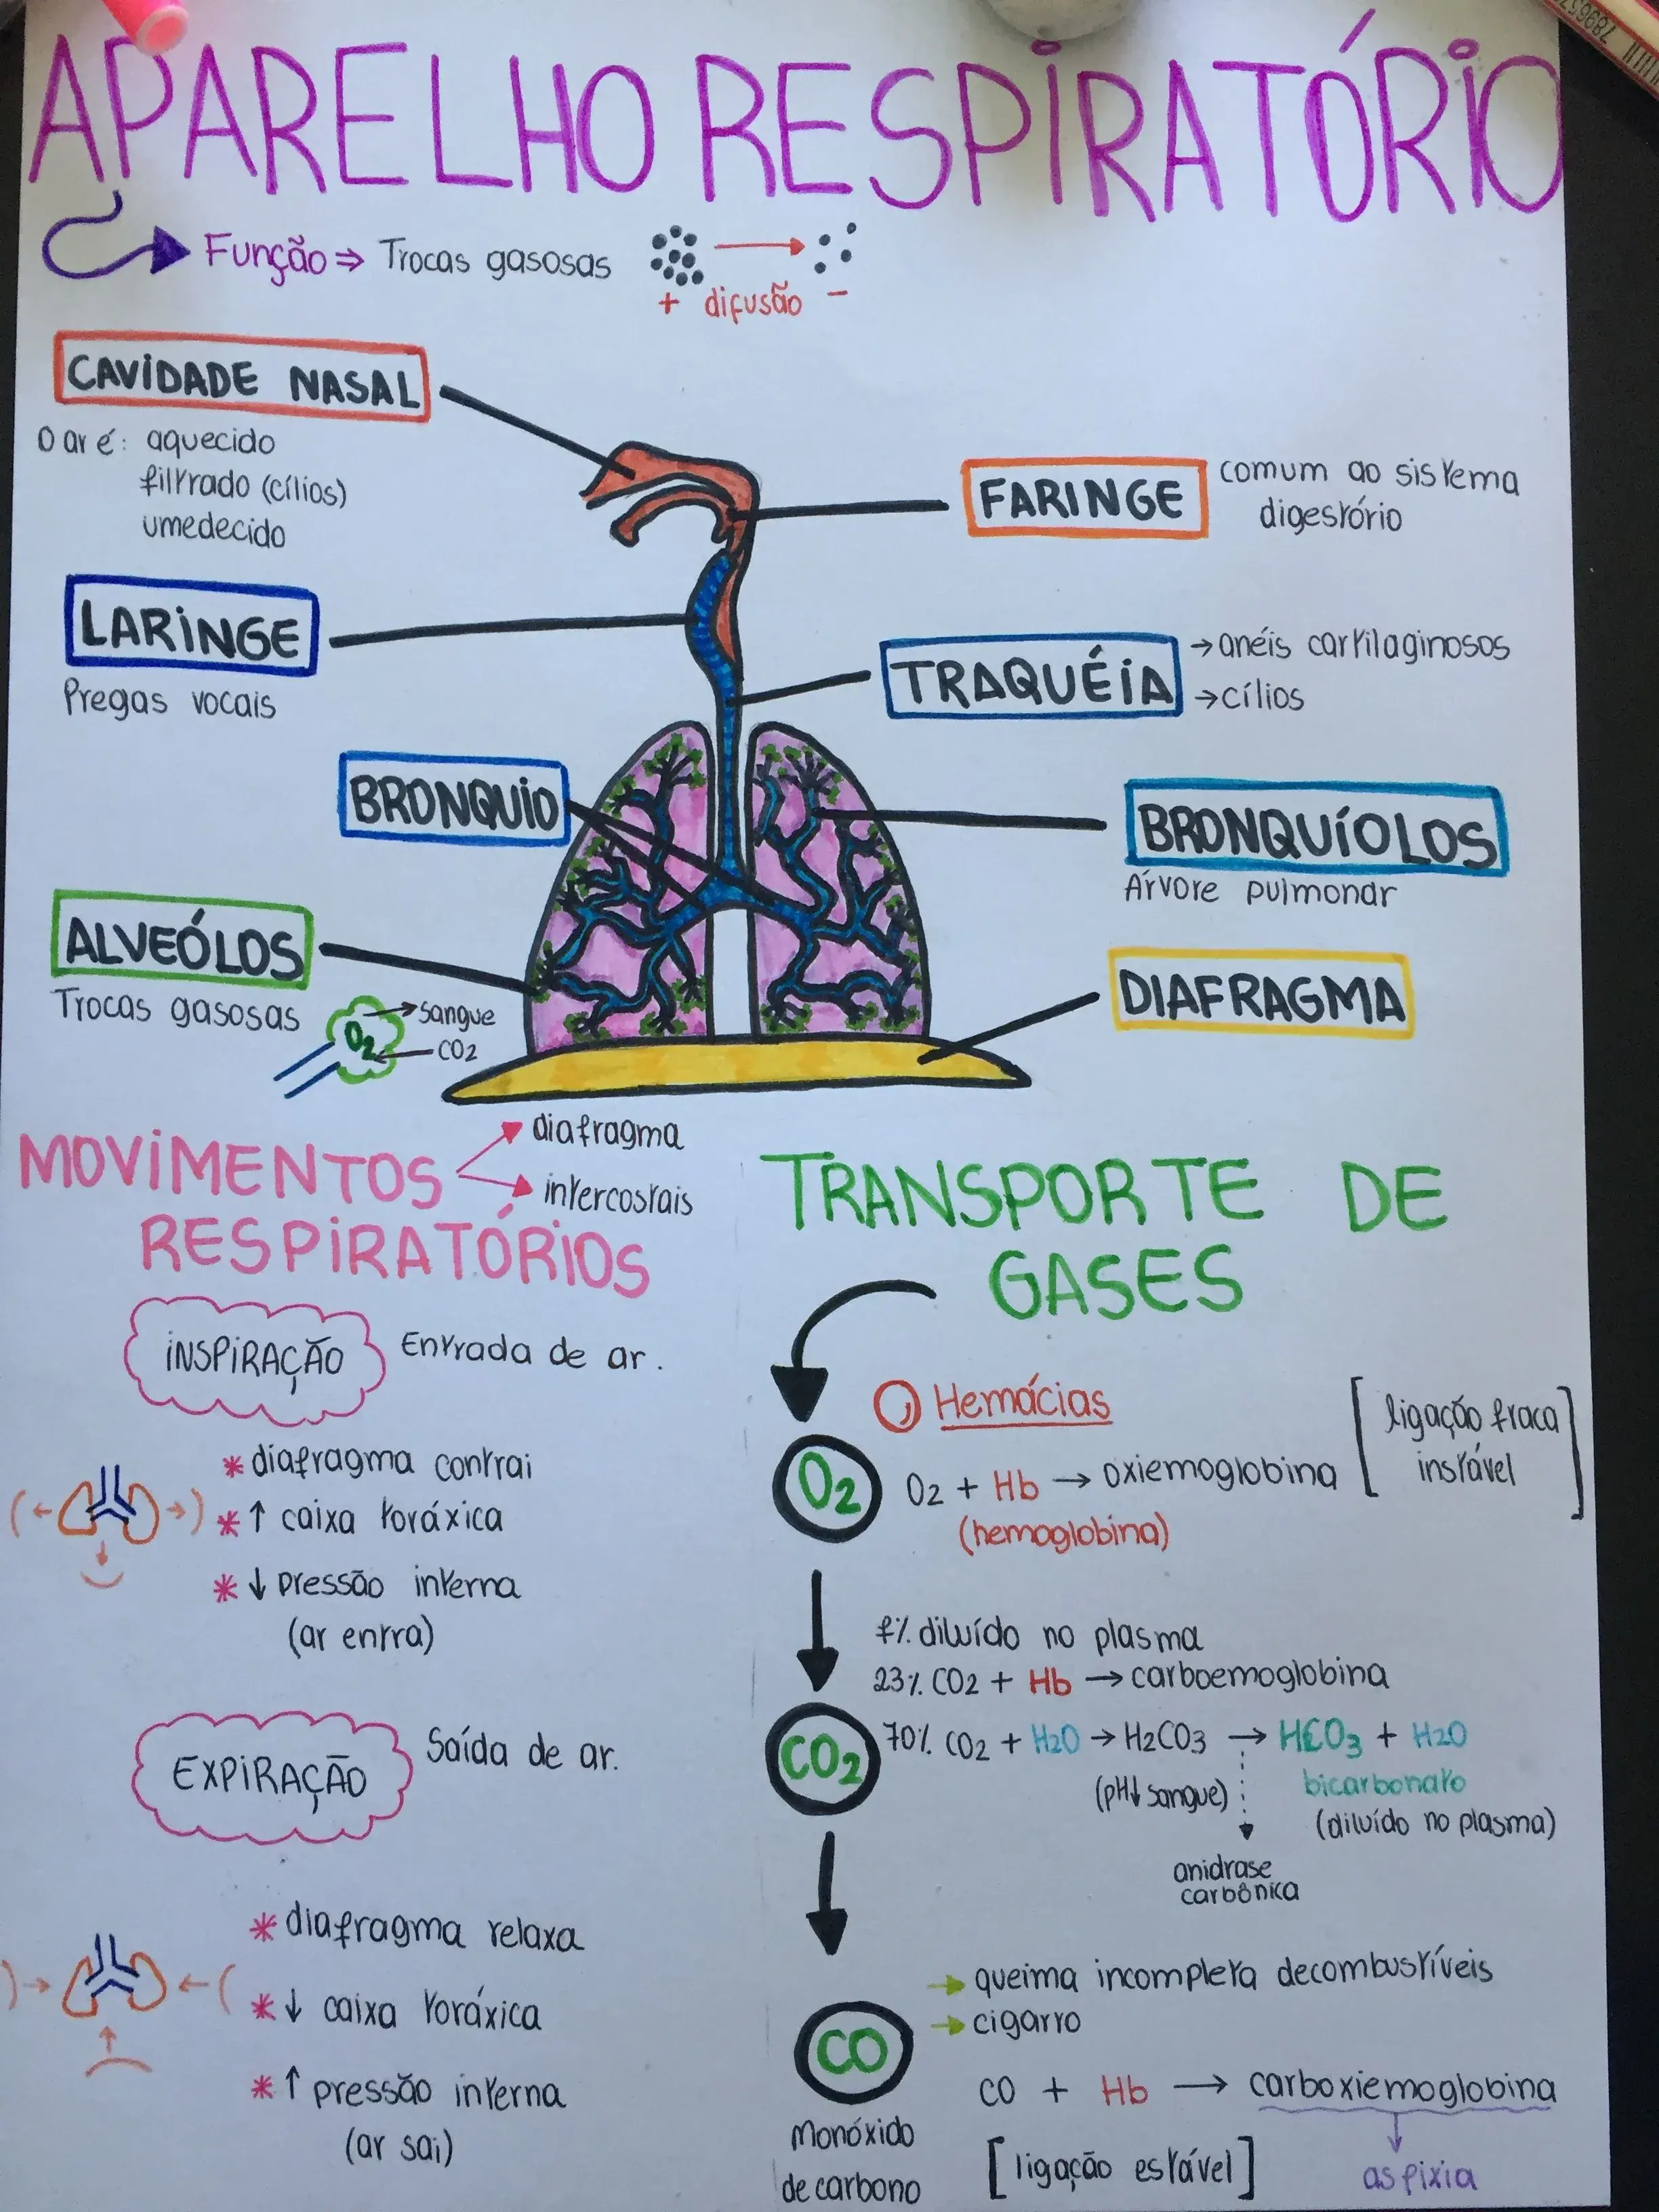 APARELHO RESPIRATÓRIO
Função ⇒ Trocas gasosas
+ difusão −
CAVIDADE NASAL
O ar é: aquecido
filtrado (cílios)
umedecido
FARINGE
comum ao sistema
digestório
LARINGE
Pregas vocais
TRAQUÉIA
→ anéis cartilaginosos
→ cílios
BRONQUIO
BRONQUÍOLOS
Árvore pulmonar
ALVEÓLOS
Trocas gasosas
O2
→ sangue
← CO2
DIAFRAGMA
MOVIMENTOS
RESPIRATÓRIOS
diafragma
intercostais
INSPIRAÇÃO
Entrada de ar.
* diafragma contrai
* ↑ caixa toráxica
* ↓ pressão interna
(ar entra)
EXPIRAÇÃO
Saída de ar.
* diafragma relaxa
* ↓ caixa toráxica
* ↑ pressão interna
(ar sai)
TRANSPORTE DE
GASES
Hemácias
O2
O2 + Hb → oxiemoglobina
(hemoglobina)
[ligação fraca
instável]
7% diluído no plasma
23% CO2 + Hb → carboemoglobina
CO2
70% CO2 + H2O → H2CO3 → HCO3 + H2O
(pH↓ sangue)
bicarbonato
(diluído no plasma)
anidrase
carbônica
→ queima incompleta decombustíveis
→ cigarro
CO
Monóxido
de carbono
CO + Hb → carboxiemoglobina
[ligação estável]
asfixia